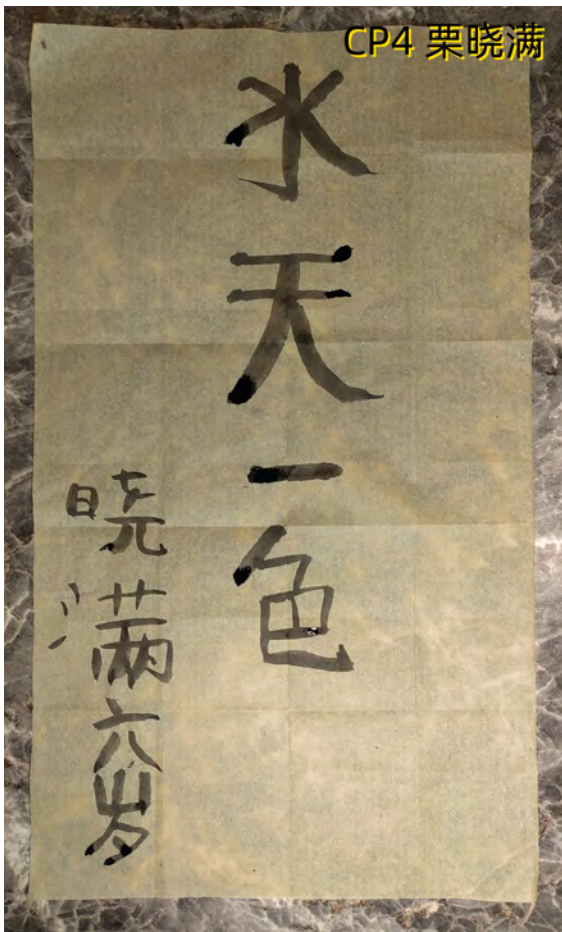 CP4 栗晓满
水天一色
晓满六岁